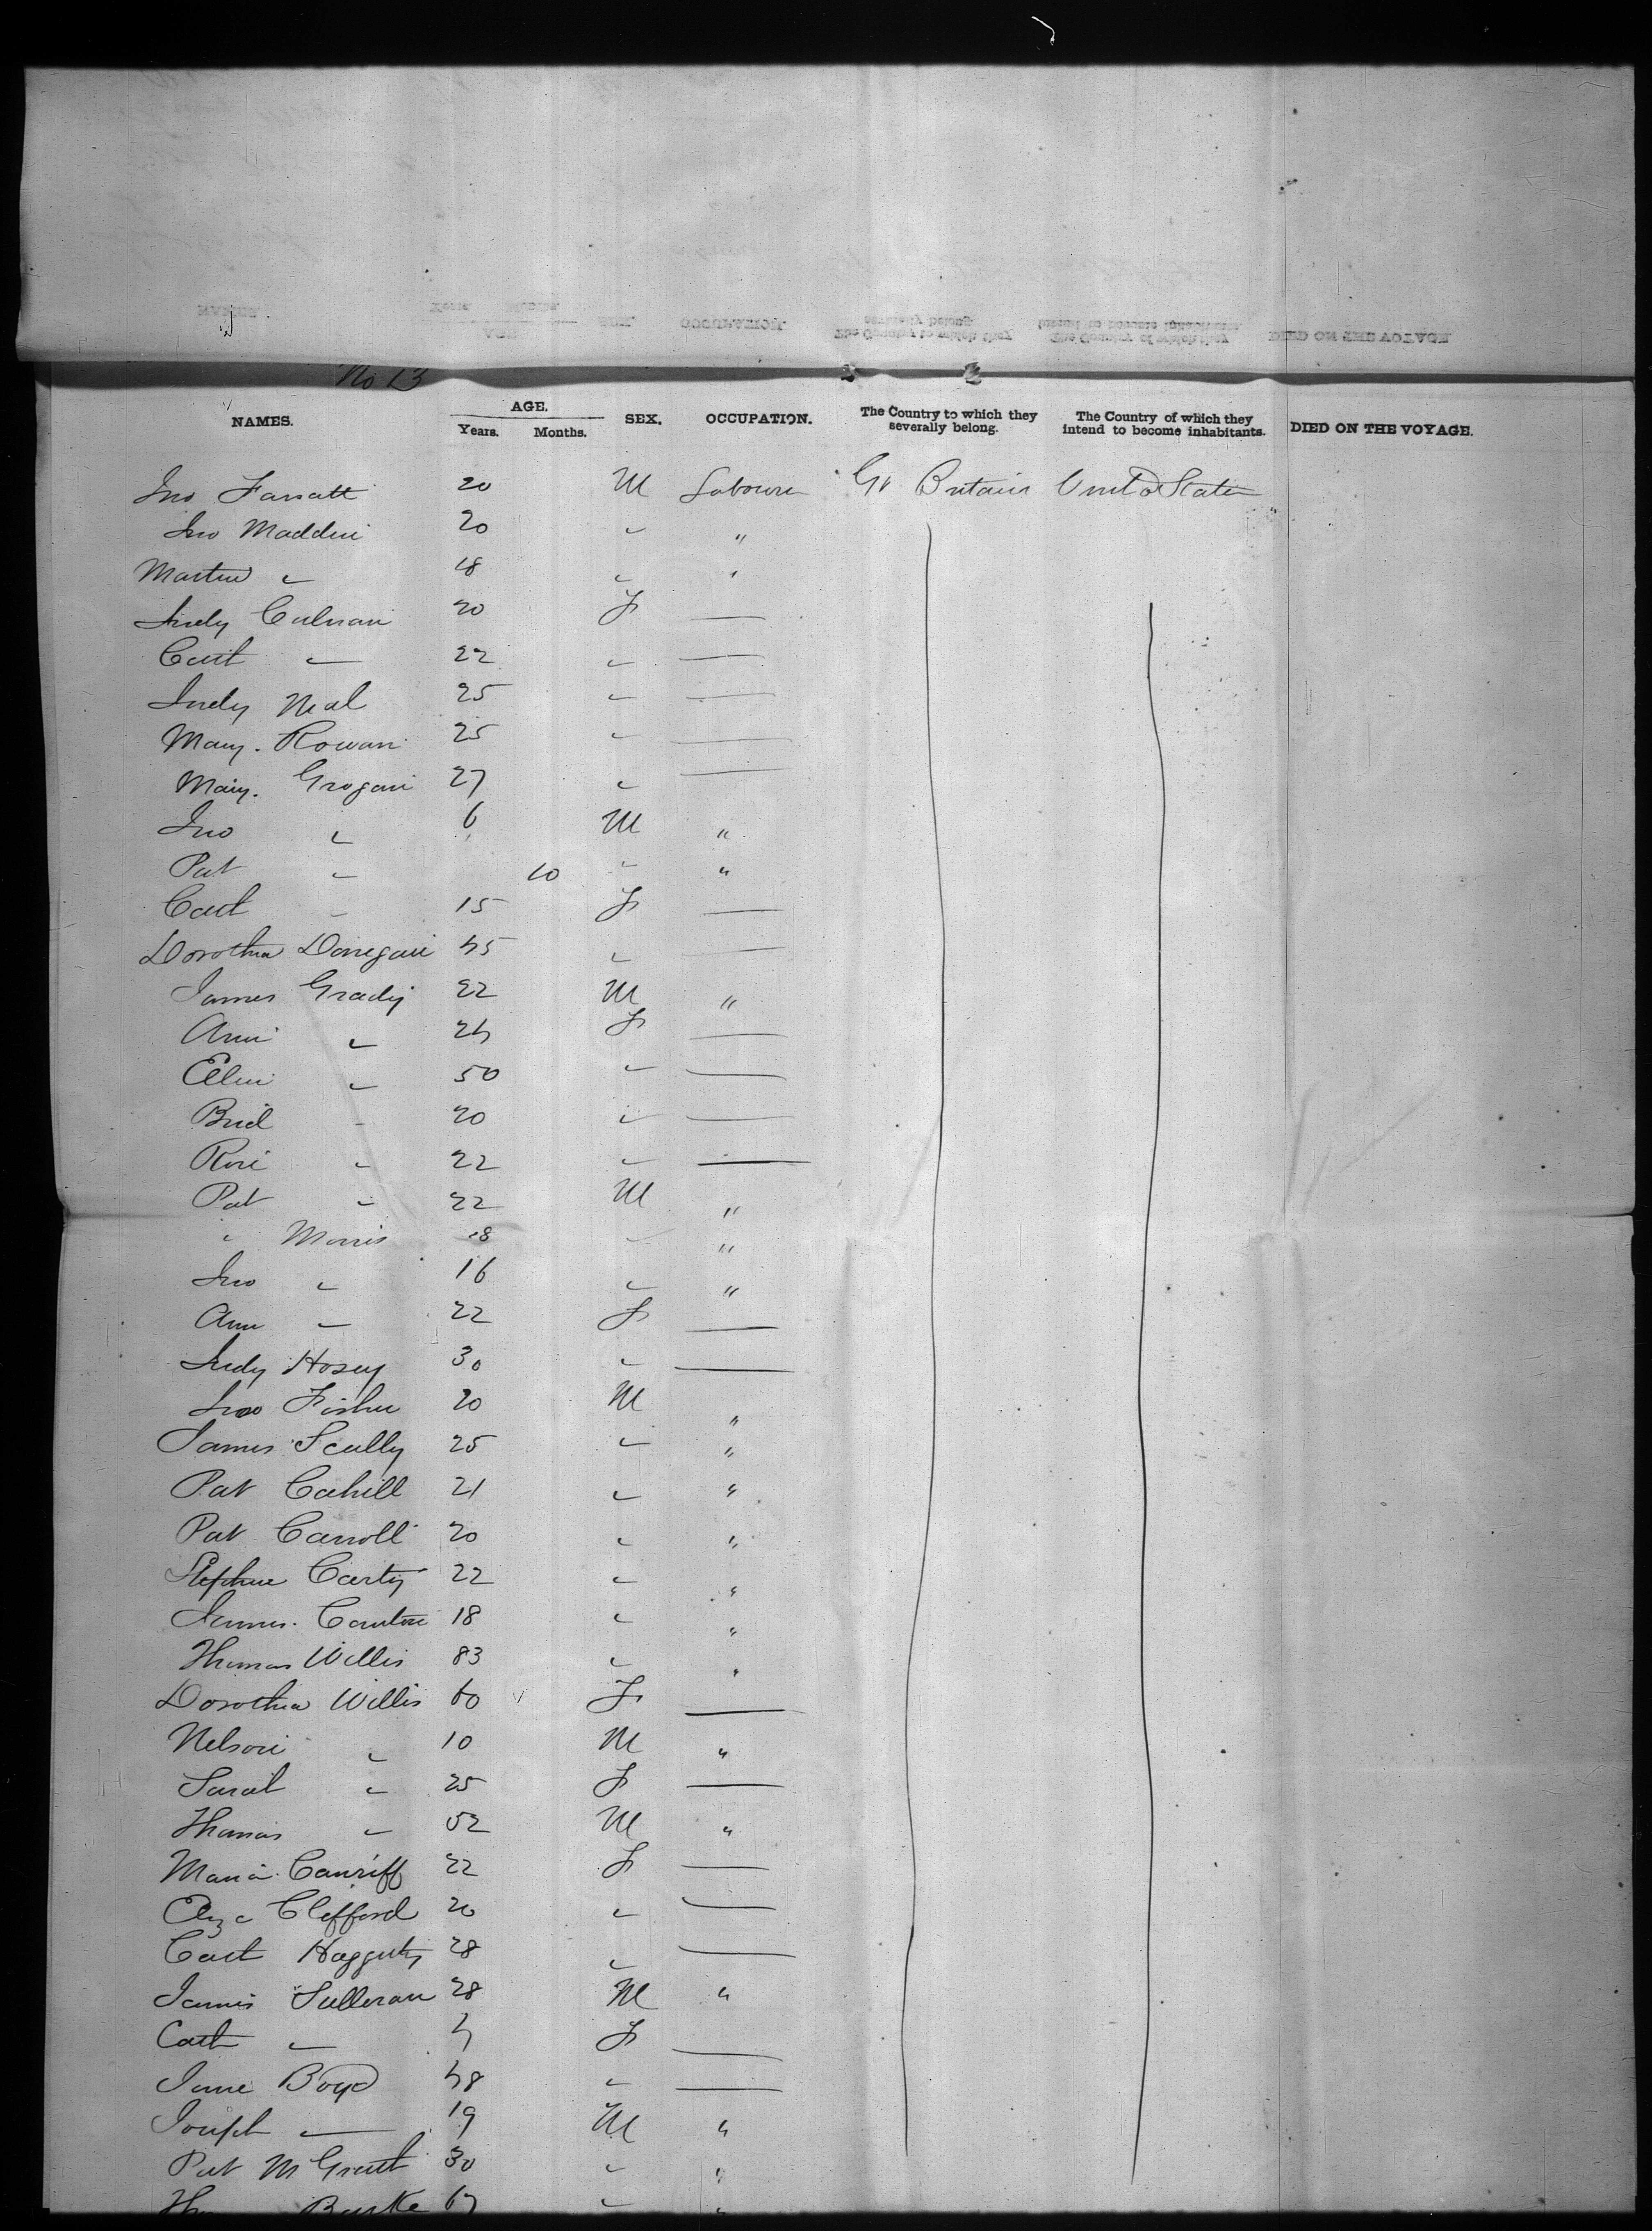 No 13
NAMES. AGE. Years. Months. SEX. OCCUPATION. The Country to which they severally belong. The Country of which they intend to become inhabitants. DIED ON THE VOYAGE.
Jno Farratt 20 M Labourer Gt Britain United States
Jno Madden 20 " "
Martin " 18 " "
Judy Culnan 20 F —
Cath " 22 " —
Judy Neal 25 " —
Mary Rowan 25 " —
Mary Grogan 27 " —
Jno " 6 M "
Pat " 10 " "
Cath " 15 F —
Dorothea Donegan 45 " —
James Grady 22 M "
Ann " 24 F —
Ellen " 50 " —
Brid " 20 " —
Rose " 22 " —
Pat " 22 M "
" Morris 18 " "
Jno " 16 " "
Ann " 22 F —
Judy Hosey 30 " —
Jno Fisher 20 M "
James Scully 25 " "
Pat Cahill 21 " "
Pat Carroll 20 " "
Stephen Carty 22 " "
James 18 " "
Thomas Willis 83 " "
Dorothea Willis 60 F —
Nelson " 10 M "
Sarah " 25 F —
Thomas " 52 M "
Maria Canriff 22 F —
Eliza Clifford 20 " —
Cath Haggerty 28 " —
James Sullivan 28 M "
Cath " 4 F —
Jane Boyd 48 " —
Joseph " 19 M "
Pat McGrath 30 " "
Burke " "